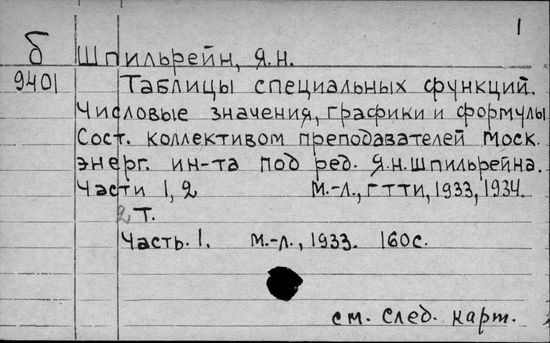 1
б Шпильрейн, Я.Н.
9401 Таблицы специальных функций.
Числовые значения, графики и формулы
Сост. коллективом преподавателей Моск.
энерг. ин-та под ред. Я.Н.Шпильрейна.
Части 1, 2 М.-Л., ГТТИ, 1933, 1934.
2 т.
Часть. 1. М.-Л., 1933. 160с.
см. след. карт.